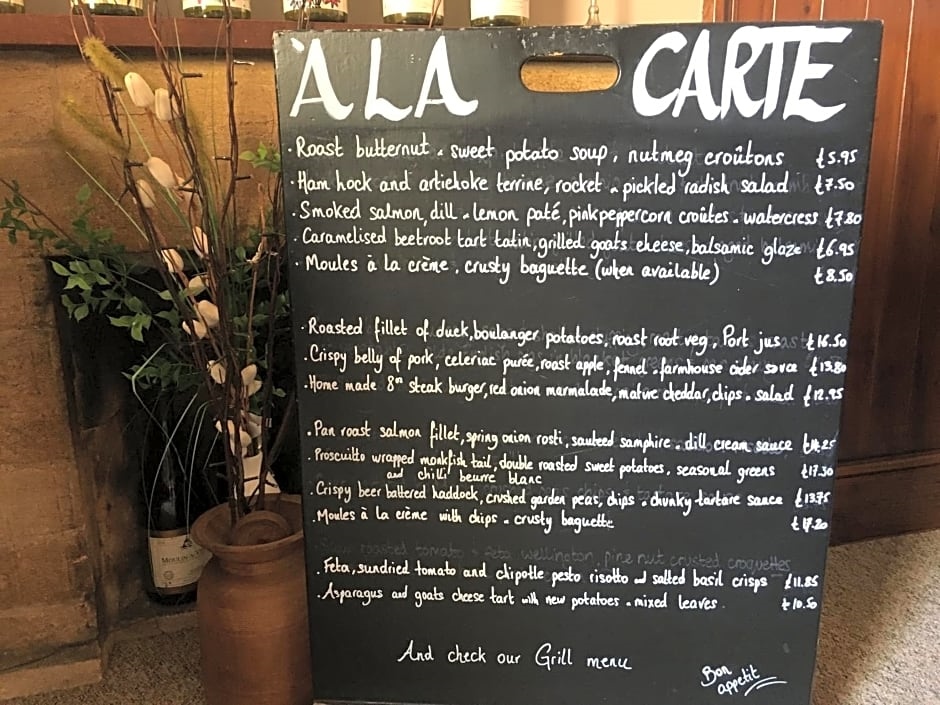 À LA CARTE
· Roast butternut & sweet potato soup, nutmeg croûtons £5.95
· Ham hock and artichoke terrine, rocket & pickled radish salad £7.50
· Smoked salmon, dill & lemon paté, pink peppercorn croûtes & watercress £7.80
· Caramelised beetroot tart tatin, grilled goats cheese, balsamic glaze £6.95
· Moules à la crème, crusty baguette (when available) £8.50
· Roasted fillet of duck, boulanger potatoes, roast root veg, Port jus £16.50
· Crispy belly of pork, celeriac purée, roast apple, fennel & farmhouse cider sauce £13.80
· Home made 8oz steak burger, red onion marmalade, mature cheddar, chips & salad £12.95
· Pan roast salmon fillet, spring onion rosti, sauteed samphire & dill cream sauce
· Proscuitto wrapped monkfish tail, double roasted sweet potatoes, seasonal greens £17.50
and chilli beurre blanc
· Crispy beer battered haddock, crushed garden peas, chips & chunky tartare sauce £13.75
· Moules à la crème with chips & crusty baguette £17.20
roasted tomato & feta wellington, pine nut crusted croquettes
· Feta, sundried tomato and chipotle pesto risotto and salted basil crisps £11.85
· Asparagus and goats cheese tart with new potatoes & mixed leaves. £10.50
And check our Grill menu
Bon
appetit